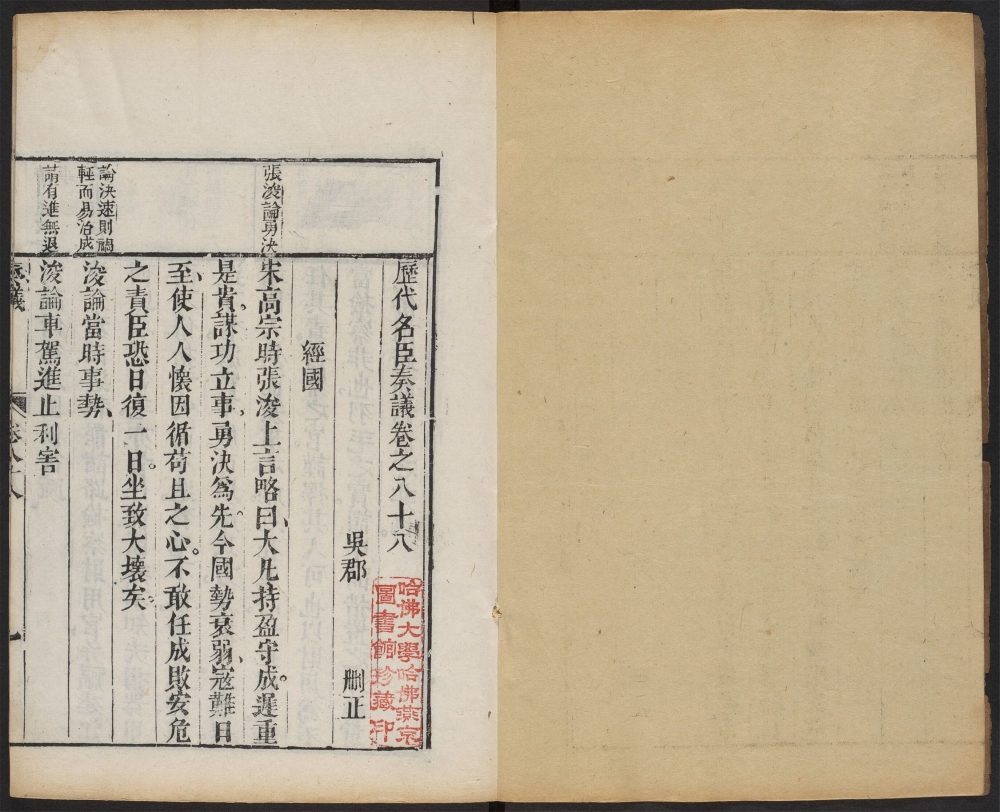 歷代名臣奏議卷之八十八
吳郡
刪正
哈佛大學哈佛燕京
圖書館珍藏印
經國
張浚論勇決
宋高宗時張浚上言略曰大凡持盈守成遲重
是貴謀功立事勇決為先今國勢衰弱寇難日
至使人人懷因循苟且之心不敢任成敗安危
之責臣恐日復一日坐致大壞矣
論決速則禍
輕而易治成
浚論當時事勢
請有進無退
浚論車駕進止利害
奏議
卷八十八
一